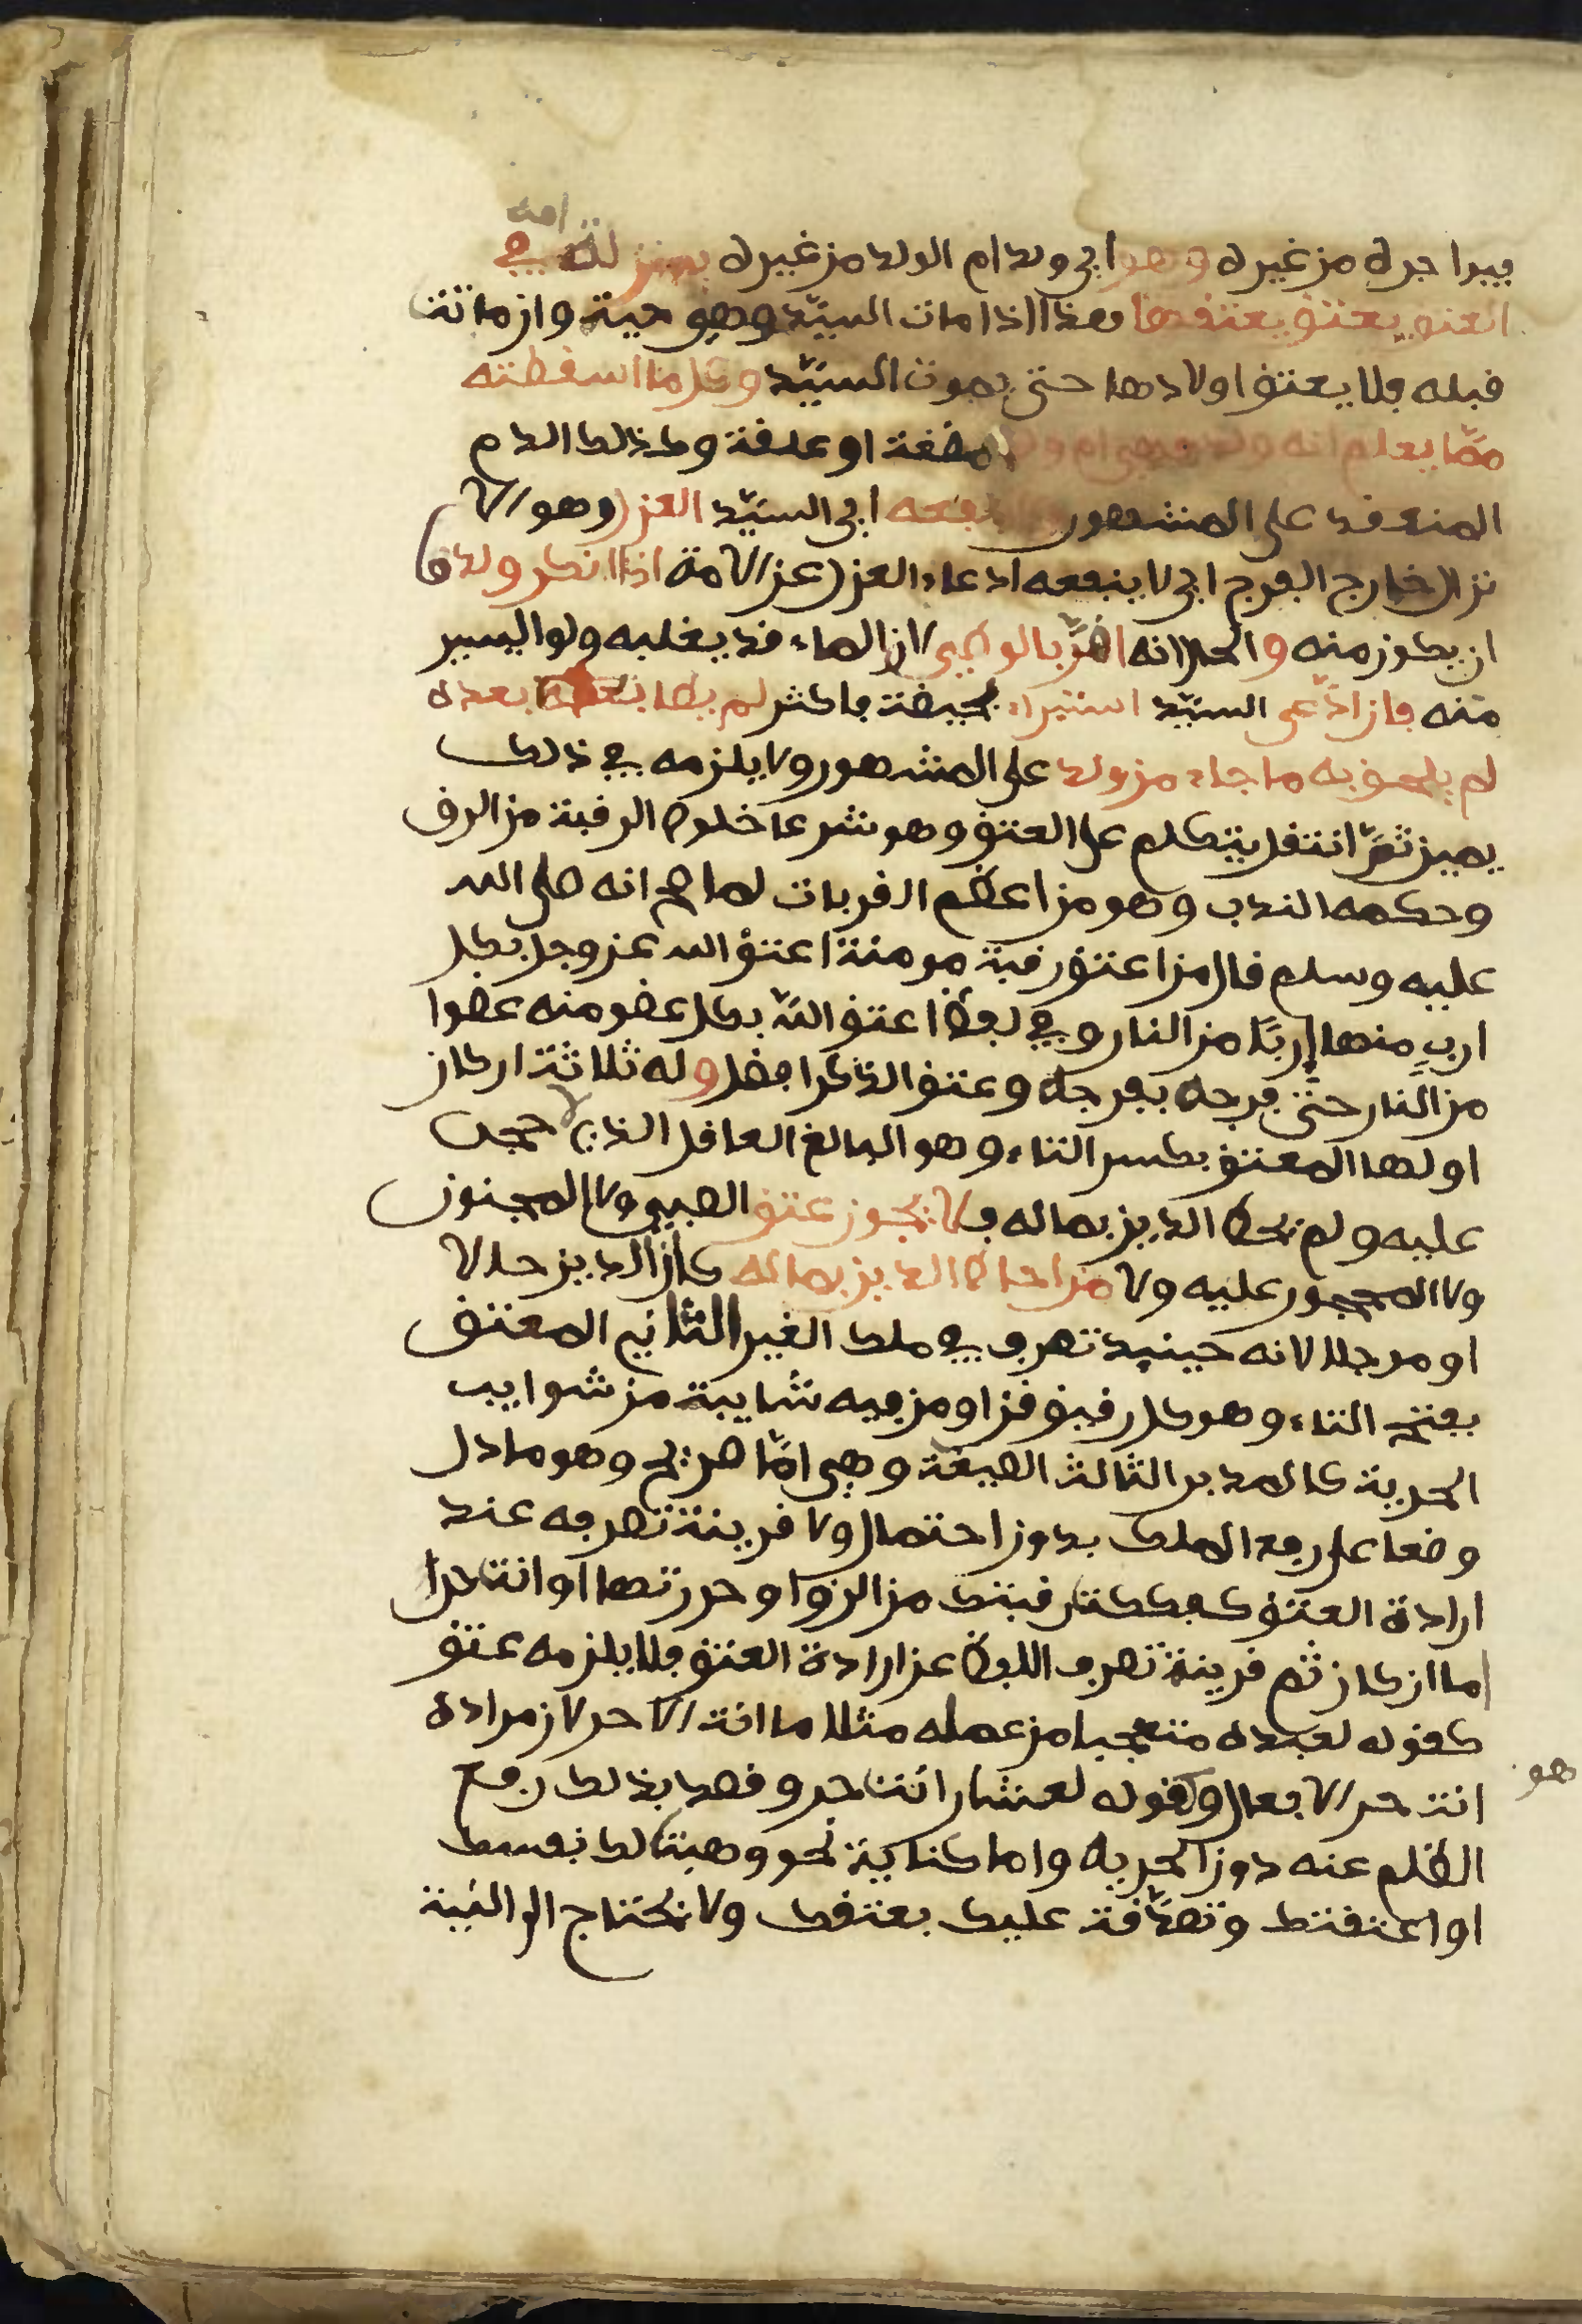 امه
فيرا جره من غيره وهو اي ولد ام الولد من غيره بمنزلة في
العتق يعتق بعتقها هذا اذا مات السيّد وهي حية وان ماتت
قبله فلا يعتق اولادها حتى يموت السيّد وكل ما اسقطته
ممّا يعلم انه ولد فهي ام ولد مضغة او علقة وكذلك الدم
المنعقد على المشهور ولا ينفعه اي السيّد العزل وهو الا
نزال خارج الفرج اي لا ينفعه ادعاء العزل عن الامة اذا انكر ولدها
ان يكون منه و الحال انه اقرّ بالوطي لان الماء قد يغلبه ولو اليسير
منه فان ادّعى السيّد استبراء بحيضة فاكثر لم يطا بعدها بعده
لم يلحق به ما جاء من ولد على المشهور ولا يلزمه في ذلك
يمين ثمّ انتقل يتكلم على العتق وهو شرعا خلوص الرقبة من الرق
وحكمه الندب وهو من اعظم القربات لما صح انه صلى الله
عليه وسلم قال من اعتق رقبة مومنة اعتق الله عز وجل بكل
اربٍ منها إربًا من النار وفي لفظ اعتق الله بكل عضو منه عضوا
من النار حتى فرجه بفرجه وعتق الذكر افضل وله ثلاثة اركان
اولها المعتق بكسر التاء وهو البالغ العاقل الذي لا حجر
عليه ولم يحط الدين بماله فلا يجوز عتق الصبي ولا المجنون
ولا المحجور عليه ولا من احاط الدين بماله كان الدين حالا
او موجلا لانه حينيد تصرف في ملك الغير الثاني المعتق
بفتح التاء وهو كل رقيق قن او من فيه شايبة من شوايب
الحرية كالمدبر الثالث الصيغة وهي امّا صريح وهو ما دل
وضعا على رفع الملك بدون احتمال ولا قرينة تصرفه عند
ارادة العتق كفككت رقبتك من الرق او حررتها او انت حرا
اما ان كان ثم قرينة تصرف اللفظ عن ارادة العتق فلا يلزمه عتق
كقوله لعبده متعجبا من عمله مثلا ما انت الا حر لان مراده
انت حر الافعال وكقوله لعشار انت حر وقصد بذلك رفع
هو
الظلم عنه دون الحرية واما كناية نحو وهبت لك نفسك
او اعتقتك وتصدّقت عليك بعتقك ولا يحتاج الى النية